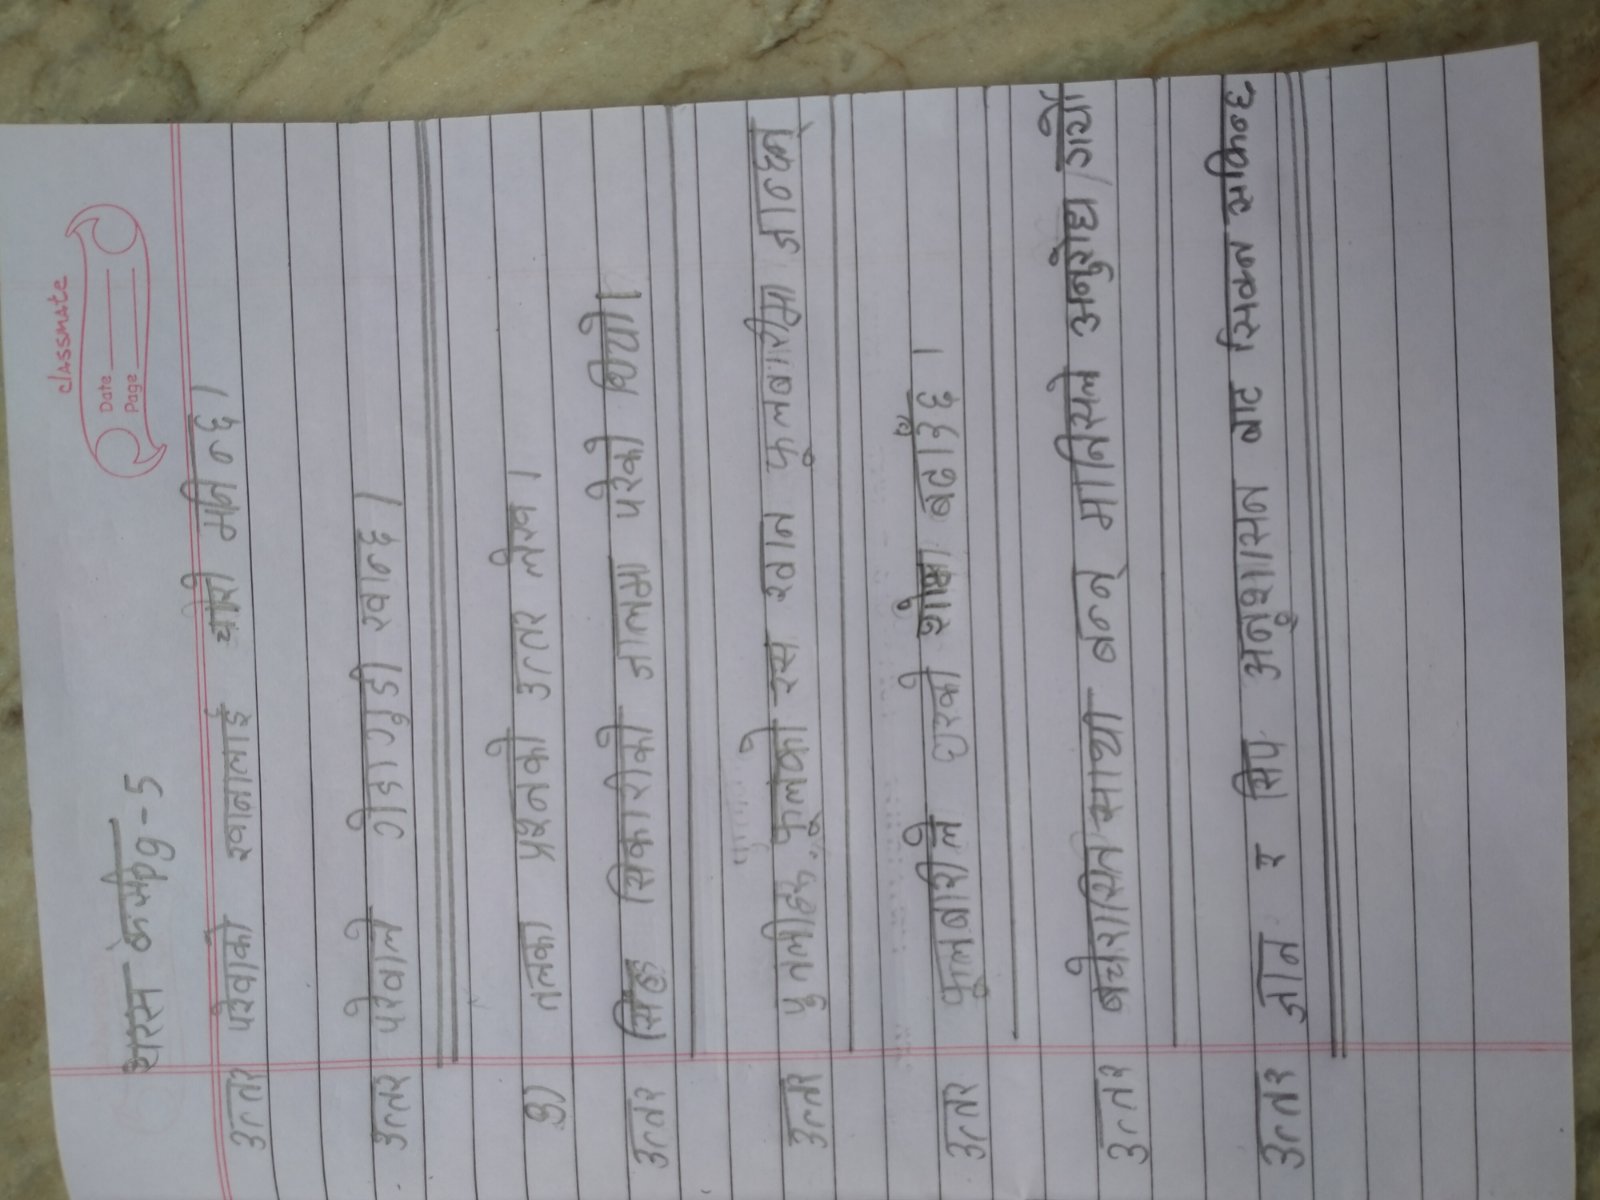 classmate
Date
Page
शारस के pg-5
उत्तर परेवाको खानालाई चारो भनिन्छ ।
उत्तर परेवाले गेडागुडी खान्छ ।
तलका प्रश्नको उत्तर लेख ।
उत्तर सिंह सिकारीको जालमा परेको थियो ।
उत्तर पुतलीहरू फूलको रस खान फूलबारीमा जान्छन्
उत्तर फूलबारीले घरको शोभा बढाउँछ ।
उत्तर बगेरासित साथी बन्न मानिसले अनुरोध गर्यो
उत्तर ज्ञान र सिप अनुशासन बाट सिक्न सकिन्छ